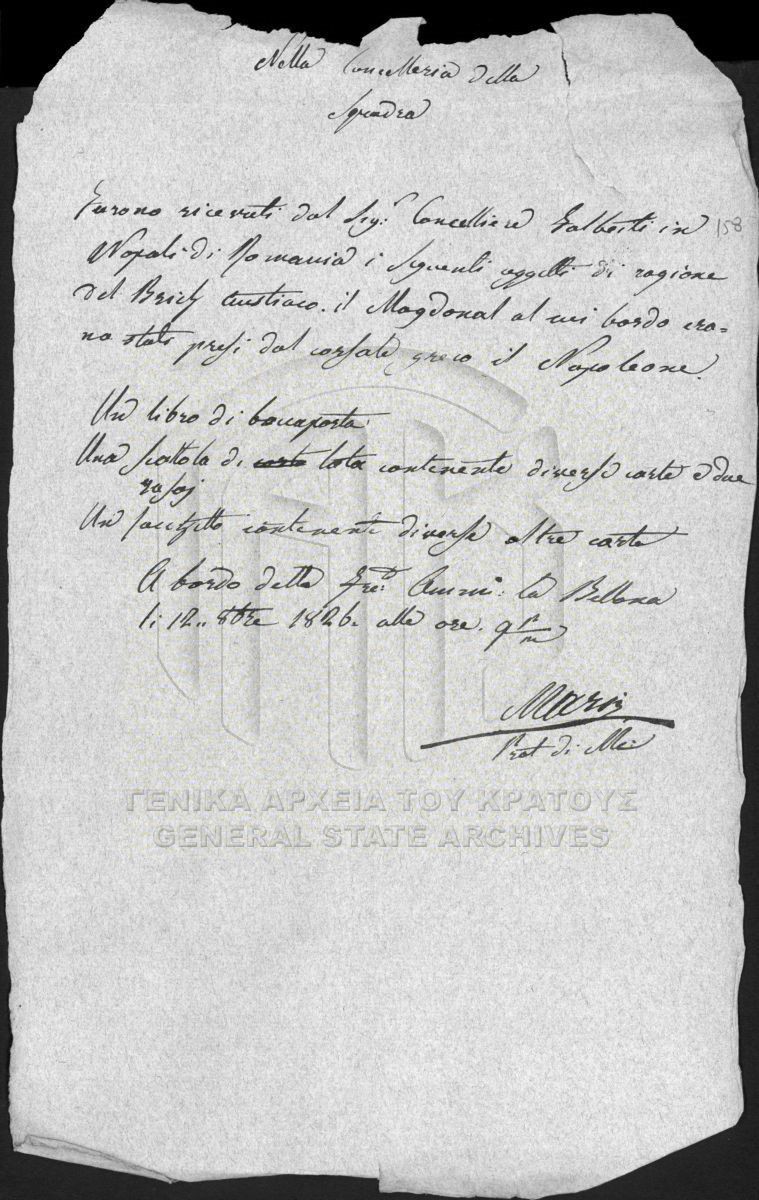 Nella Cancelleria della
Squadra
Furono ricevuti dal Sig.r Cancelliere Galberti in
158
Napoli di Romania i seguenti oggetti di ragione
del Brick Austriaco. il Magdonal al cui bordo era=
no stati presi dal corsale greco il Napoleone.
Un libro di boccaporta
Una scattola di carta latta contenente diverse carte e due
rasoj
Un sacchetto contenente diverse altre carte
A bordo della Fre: la Bellona
li 12.. 8bre 1826. alle ore. 9
di
ΓΕΝΙΚΑ ΑΡΧΕΙΑ ΤΟΥ ΚΡΑΤΟΥΣ
GENERAL STATE ARCHIVES